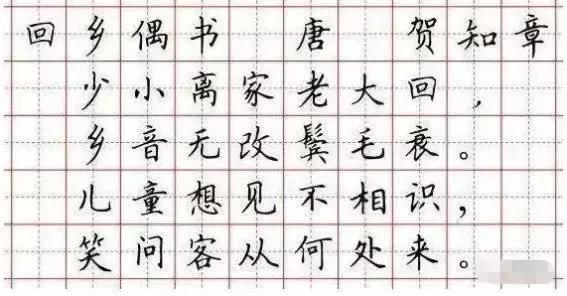 回乡偶书 唐 贺知章
少小离家老大回，
乡音无改鬓毛衰。
儿童想见不相识，
笑问客从何处来。